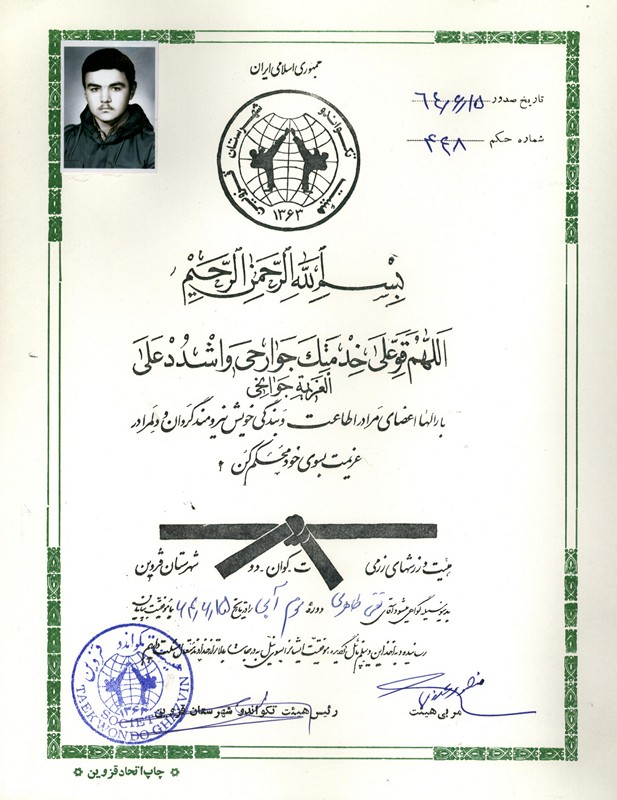 جمهوری اسلامی ایران
تاریخ صدور ۶۴/۶/۱۵
شماره حکم ۴۴۸
هیئت تکواندو شهرستان قزوین
۱۳۶۳
بِسْمِ اللهِ الرَّحْمنِ الرَّحیْمِ
اَللّهُمَّ قَوِّ عَلی خِدْمَتِكَ جَوارِحی وَاشْدُدْ عَلَی
الْعَزیمَةِ جَوانِحی
بارالها اعضای مرا در اطاعت و بندگی خویش نیرومند گردان و دلم را در
عزیمت بسوی خود محکم کن
هیئت ورزشهای رزمی ت-کوان-دو شهرستان قزوین
بدینوسیله گواهی میشود آقای تقی طاهری دوره سوم آبی را در تاریخ ۶۴/۶/۱۵ با موفقیت بپایان
رسانیده و به اخذ این دیپلم نائل گردیده موفقیت ایشان را بسوی نیل به درجات بالاتر از خداوند متعال مسئلت داریم
مربی هیئت
رئیس هیئت تکواندو شهرستان قزوین
هیئت تکواندو قزوین
۱۳۶۳
SOCIETY
TAEKWONDO GHAZVIN
چاپ اتحاد قزوین